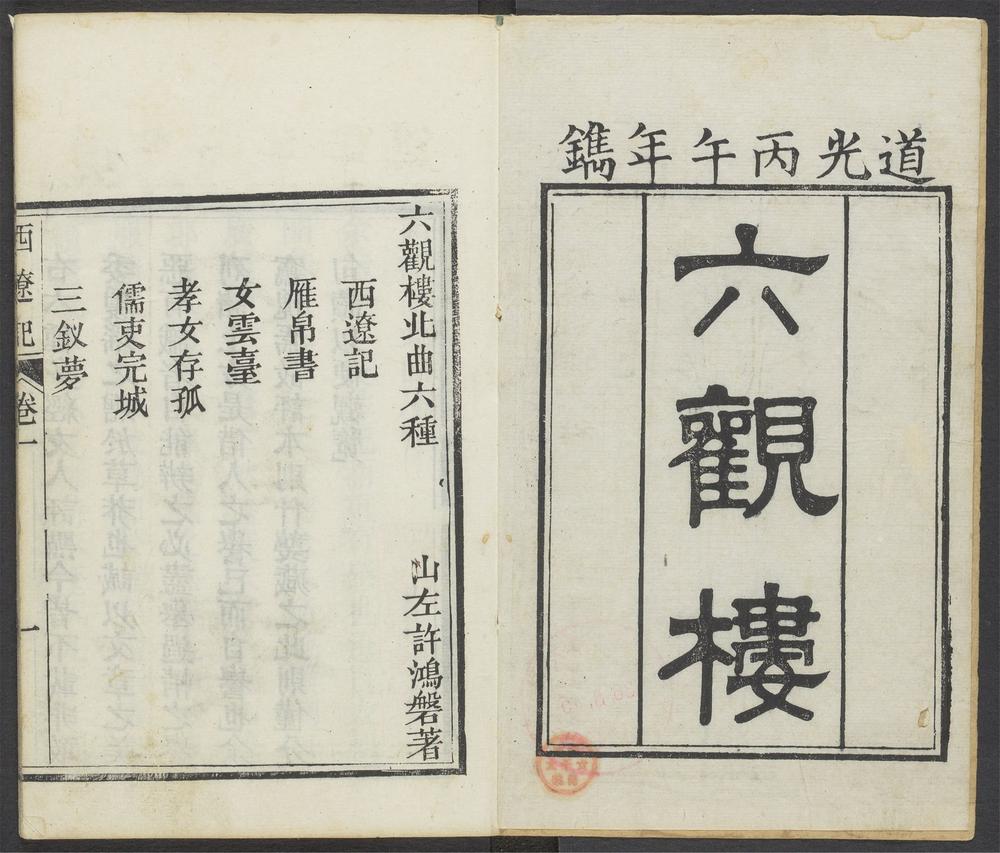 道光丙午年鐫
六觀樓
六觀樓北曲六種
山左許鴻磐著
西遼記
雁帛書
女雲臺
孝女存孤
儒吏完城
三釵夢
西遼記
卷一
一